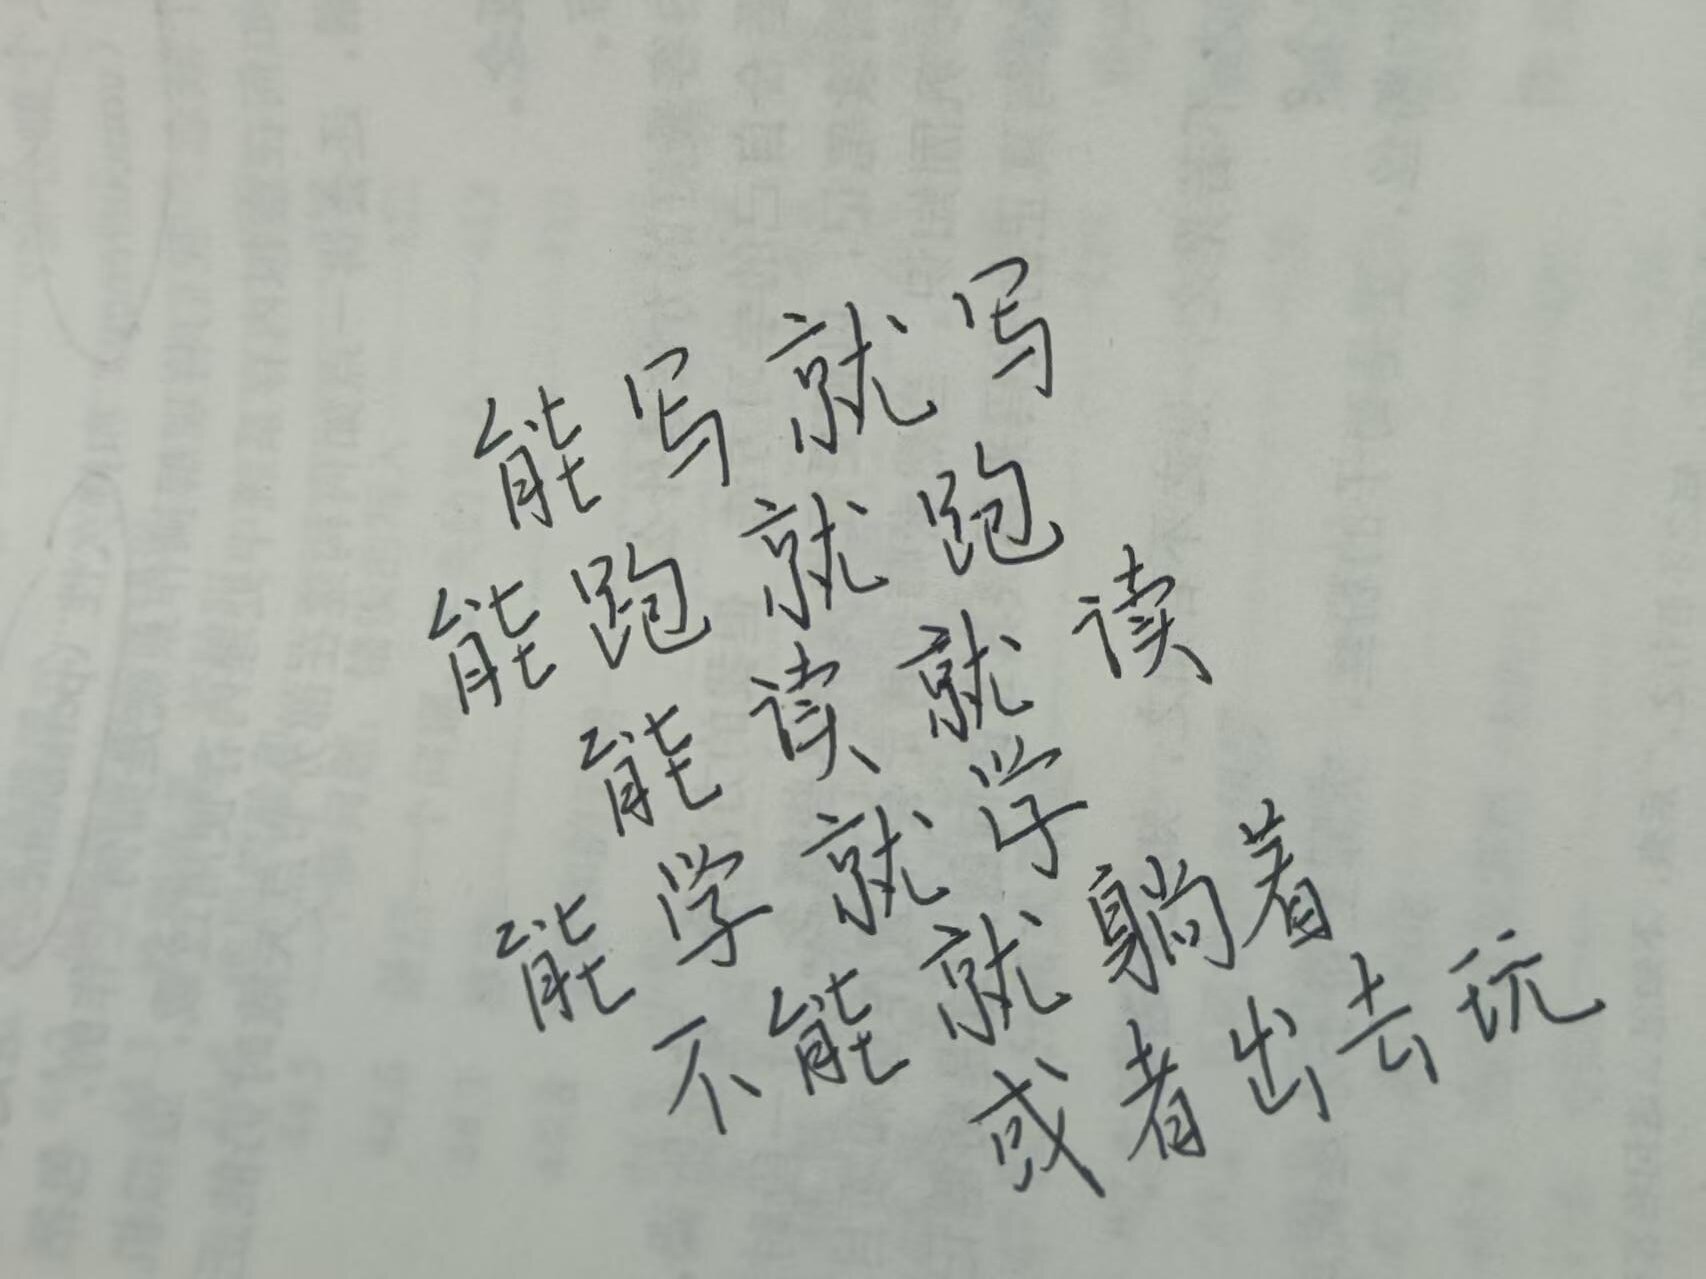 能写就写
能跑就跑
能读就读
能学就学
不能就躺着
或者出去玩